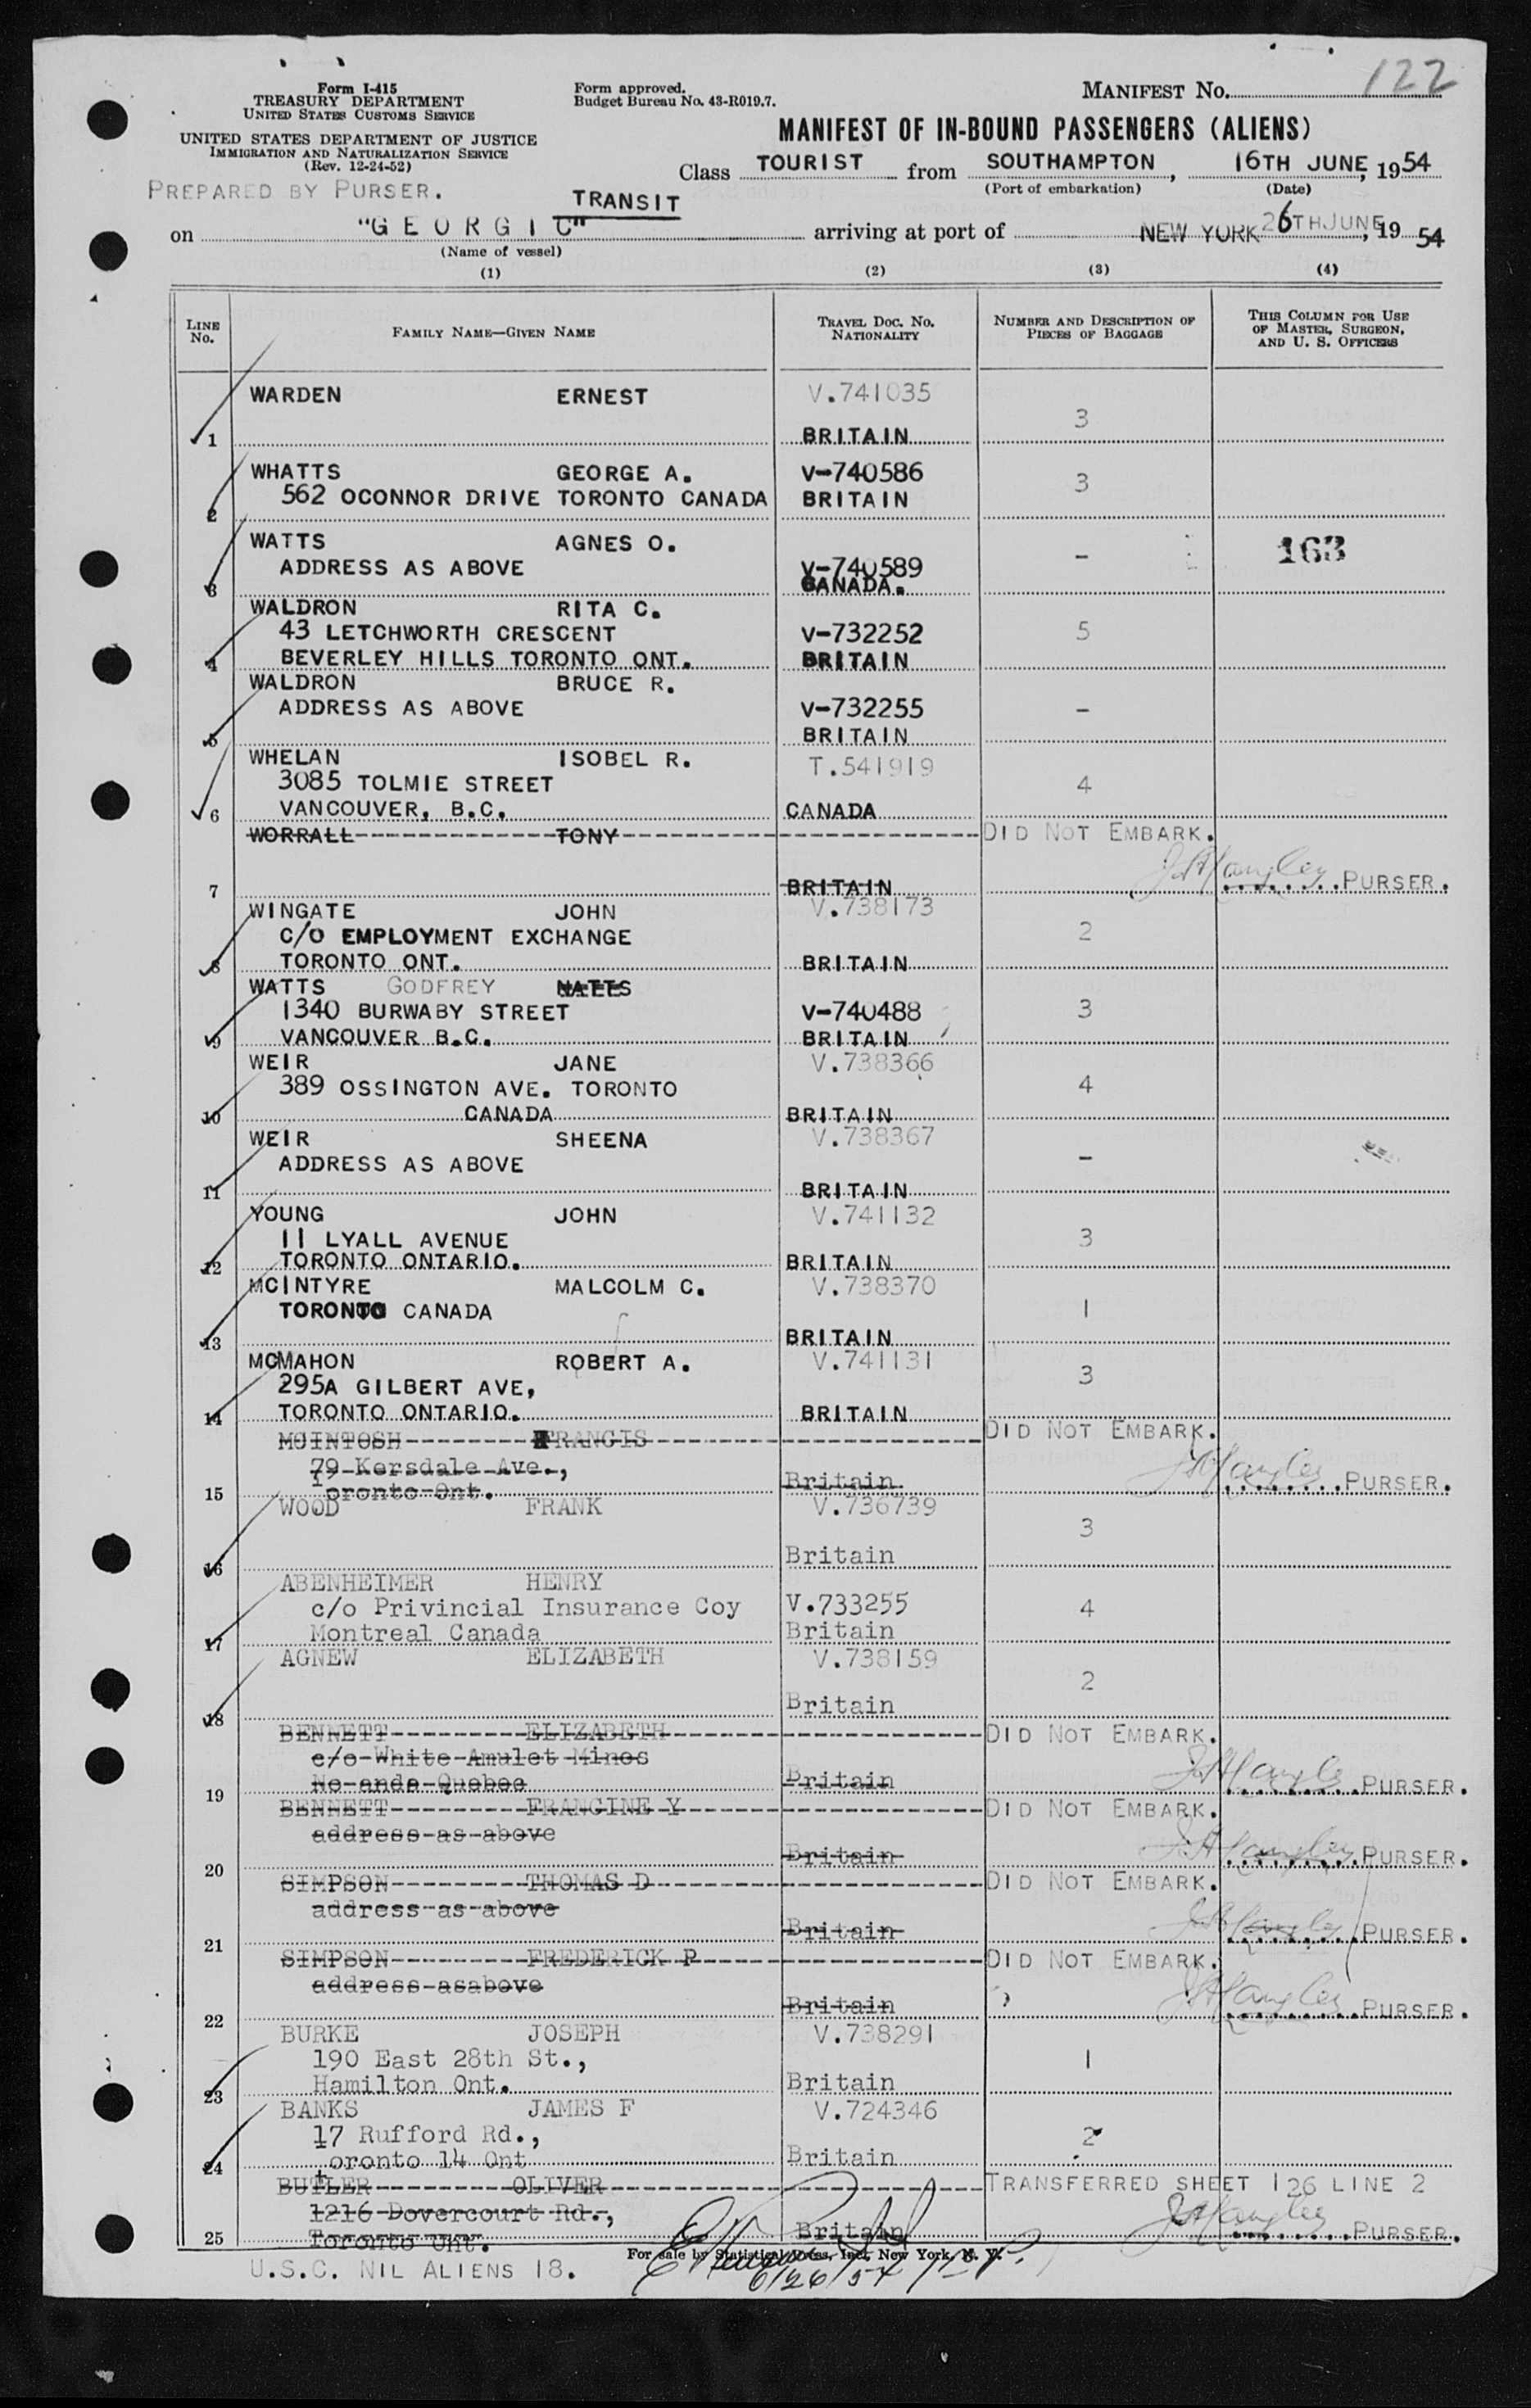 122
Form I-415
TREASURY DEPARTMENT
UNITED STATES CUSTOMS SERVICE
UNITED STATES DEPARTMENT OF JUSTICE
IMMIGRATION AND NATURALIZATION SERVICE
(Rev. 12-24-52)
PREPARED BY PURSER.
Form approved.
Budget Bureau No. 43-R019.7.
MANIFEST No.
MANIFEST OF IN-BOUND PASSENGERS (ALIENS)
Class TOURIST from SOUTHAMPTON, 16TH JUNE, 1954
(Port of embarkation) (Date)
TRANSIT
on "GEORGIC" arriving at port of NEW YORK 26TH JUNE, 19 54
(Name of vessel)
(1) (2) (3) (4)
LINE No. FAMILY NAME—GIVEN NAME TRAVEL DOC. No. NATIONALITY NUMBER AND DESCRIPTION OF PIECES OF BAGGAGE THIS COLUMN FOR USE OF MASTER, SURGEON, AND U. S. OFFICERS
WARDEN ERNEST V.741035
3
1 BRITAIN
WHATTS GEORGE A. V-740586 3
562 OCONNOR DRIVE TORONTO CANADA BRITAIN
2
WATTS AGNES O. - 163
ADDRESS AS ABOVE V-740589
3 CANADA.
WALDRON RITA C.
43 LETCHWORTH CRESCENT V-732252 5
4 BEVERLEY HILLS TORONTO ONT. BRITAIN
WALDRON BRUCE R.
ADDRESS AS ABOVE V-732255 -
5 BRITAIN
WHELAN ISOBEL R. T.541919
3085 TOLMIE STREET 4
6 VANCOUVER, B.C. CANADA
WORRALL TONY DID NOT EMBARK.
7 BRITAIN PURSER.
WINGATE JOHN V.738173
C/O EMPLOYMENT EXCHANGE 2
8 TORONTO ONT. BRITAIN
WATTS GODFREY
1340 BURWABY STREET V-740488 3
9 VANCOUVER B.C. BRITAIN
WEIR JANE V.738366
389 OSSINGTON AVE. TORONTO 4
10 CANADA BRITAIN
WEIR SHEENA V.738367
ADDRESS AS ABOVE -
11 BRITAIN
YOUNG JOHN V.741132
11 LYALL AVENUE 3
12 TORONTO ONTARIO. BRITAIN
MCINTYRE MALCOLM C. V.738370
TORONTO CANADA 1
13 BRITAIN
MCMAHON ROBERT A. V.741131
295A GILBERT AVE, 3
14 TORONTO ONTARIO. BRITAIN
MCINTOSH FRANCIS DID NOT EMBARK.
79 Kersdale Ave.,
15 Toronto Ont. Britain PURSER.
WOOD FRANK V.736739
3
16 Britain
ABENHEIMER HENRY
c/o Privincial Insurance Coy V.733255 4
17 Montreal Canada Britain
AGNEW ELIZABETH V.738159
2
18 Britain
BENNETT ELIZABETH DID NOT EMBARK.
c/o White Amulet Mines
19 No anda Quebec Britain PURSER.
BENNETT FRANCINE Y DID NOT EMBARK.
address as above
20 Britain PURSER.
SIMPSON THOMAS D DID NOT EMBARK.
address as above
21 Britain PURSER.
SIMPSON FREDERICK P DID NOT EMBARK.
address asabove
22 Britain PURSER.
BURKE JOSEPH V.738291
190 East 28th St., 1
23 Hamilton Ont. Britain
BANKS JAMES F V.724346
17 Rufford Rd., 2
24 toronto 14 Ont Britain
BUTLER OLIVER TRANSFERRED SHEET 126 LINE 2
1216 Dovercourt Rd.,
25 Toronto Ont. Britain PURSER.
For sale by Statistical Press, Inc., New York, N. Y.
U.S.C. NIL ALIENS 18.
6/26/54